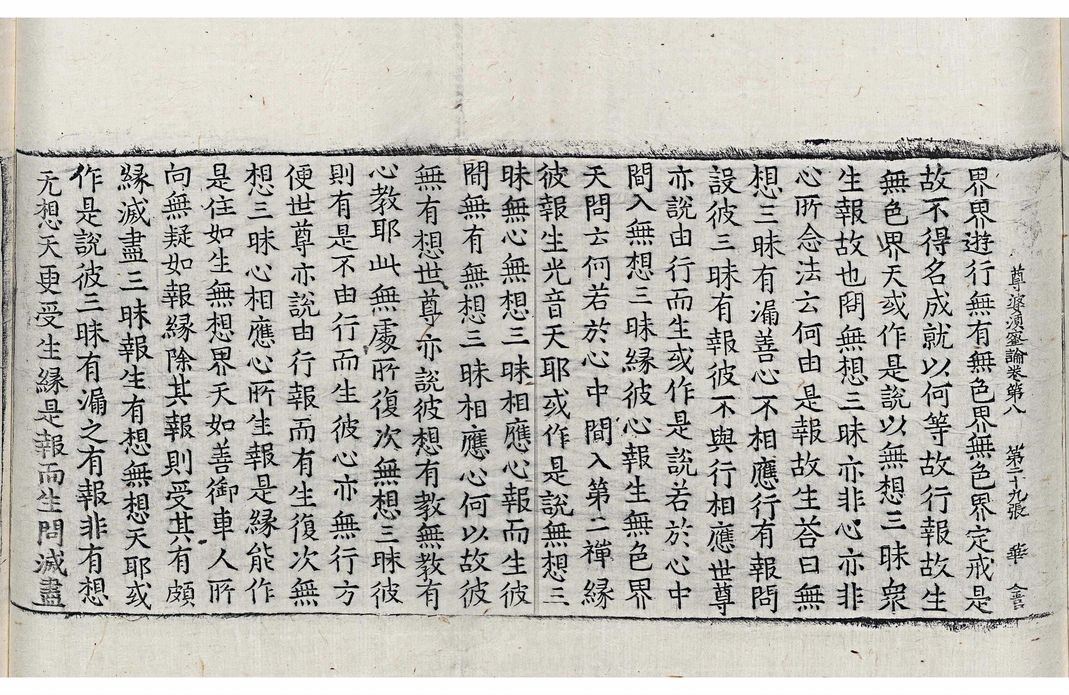 尊婆須蜜論卷第八 第二十九張 華
界界遊行無有無色界無色界定戒是
故不得名成就以何等故行報故生
無色界天或作是說以無想三昧衆
生報故也問無想三昧亦非心亦非
心所念法云何由是報故生荅曰無
想三昧有漏善心不相應行有報問
設彼三昧有報彼不與行相應世尊
亦說由行而生或作是說若於心中
間入無想三昧緣彼心報生無色界
天問云何若於心中間入第二禪緣
彼報生光音天耶或作是說無想三
昧無心無想三昧相應心報而生彼
間無有無想三昧相應心何以故彼
無有想世尊亦說彼想有教無教有
心教耶此無處所復次無想三昧彼
則有是不由行而生彼心亦無行方
便世尊亦說由行報而有生復次無
想三昧心相應心所生報是緣能作
是住如生無想界天如善御車人所
向無疑如報緣除其報則受其有頗
緣滅盡三昧報生有想無想天耶或
作是說彼三昧有漏之有報非有想
无想天更受生緣是報而生問滅盡